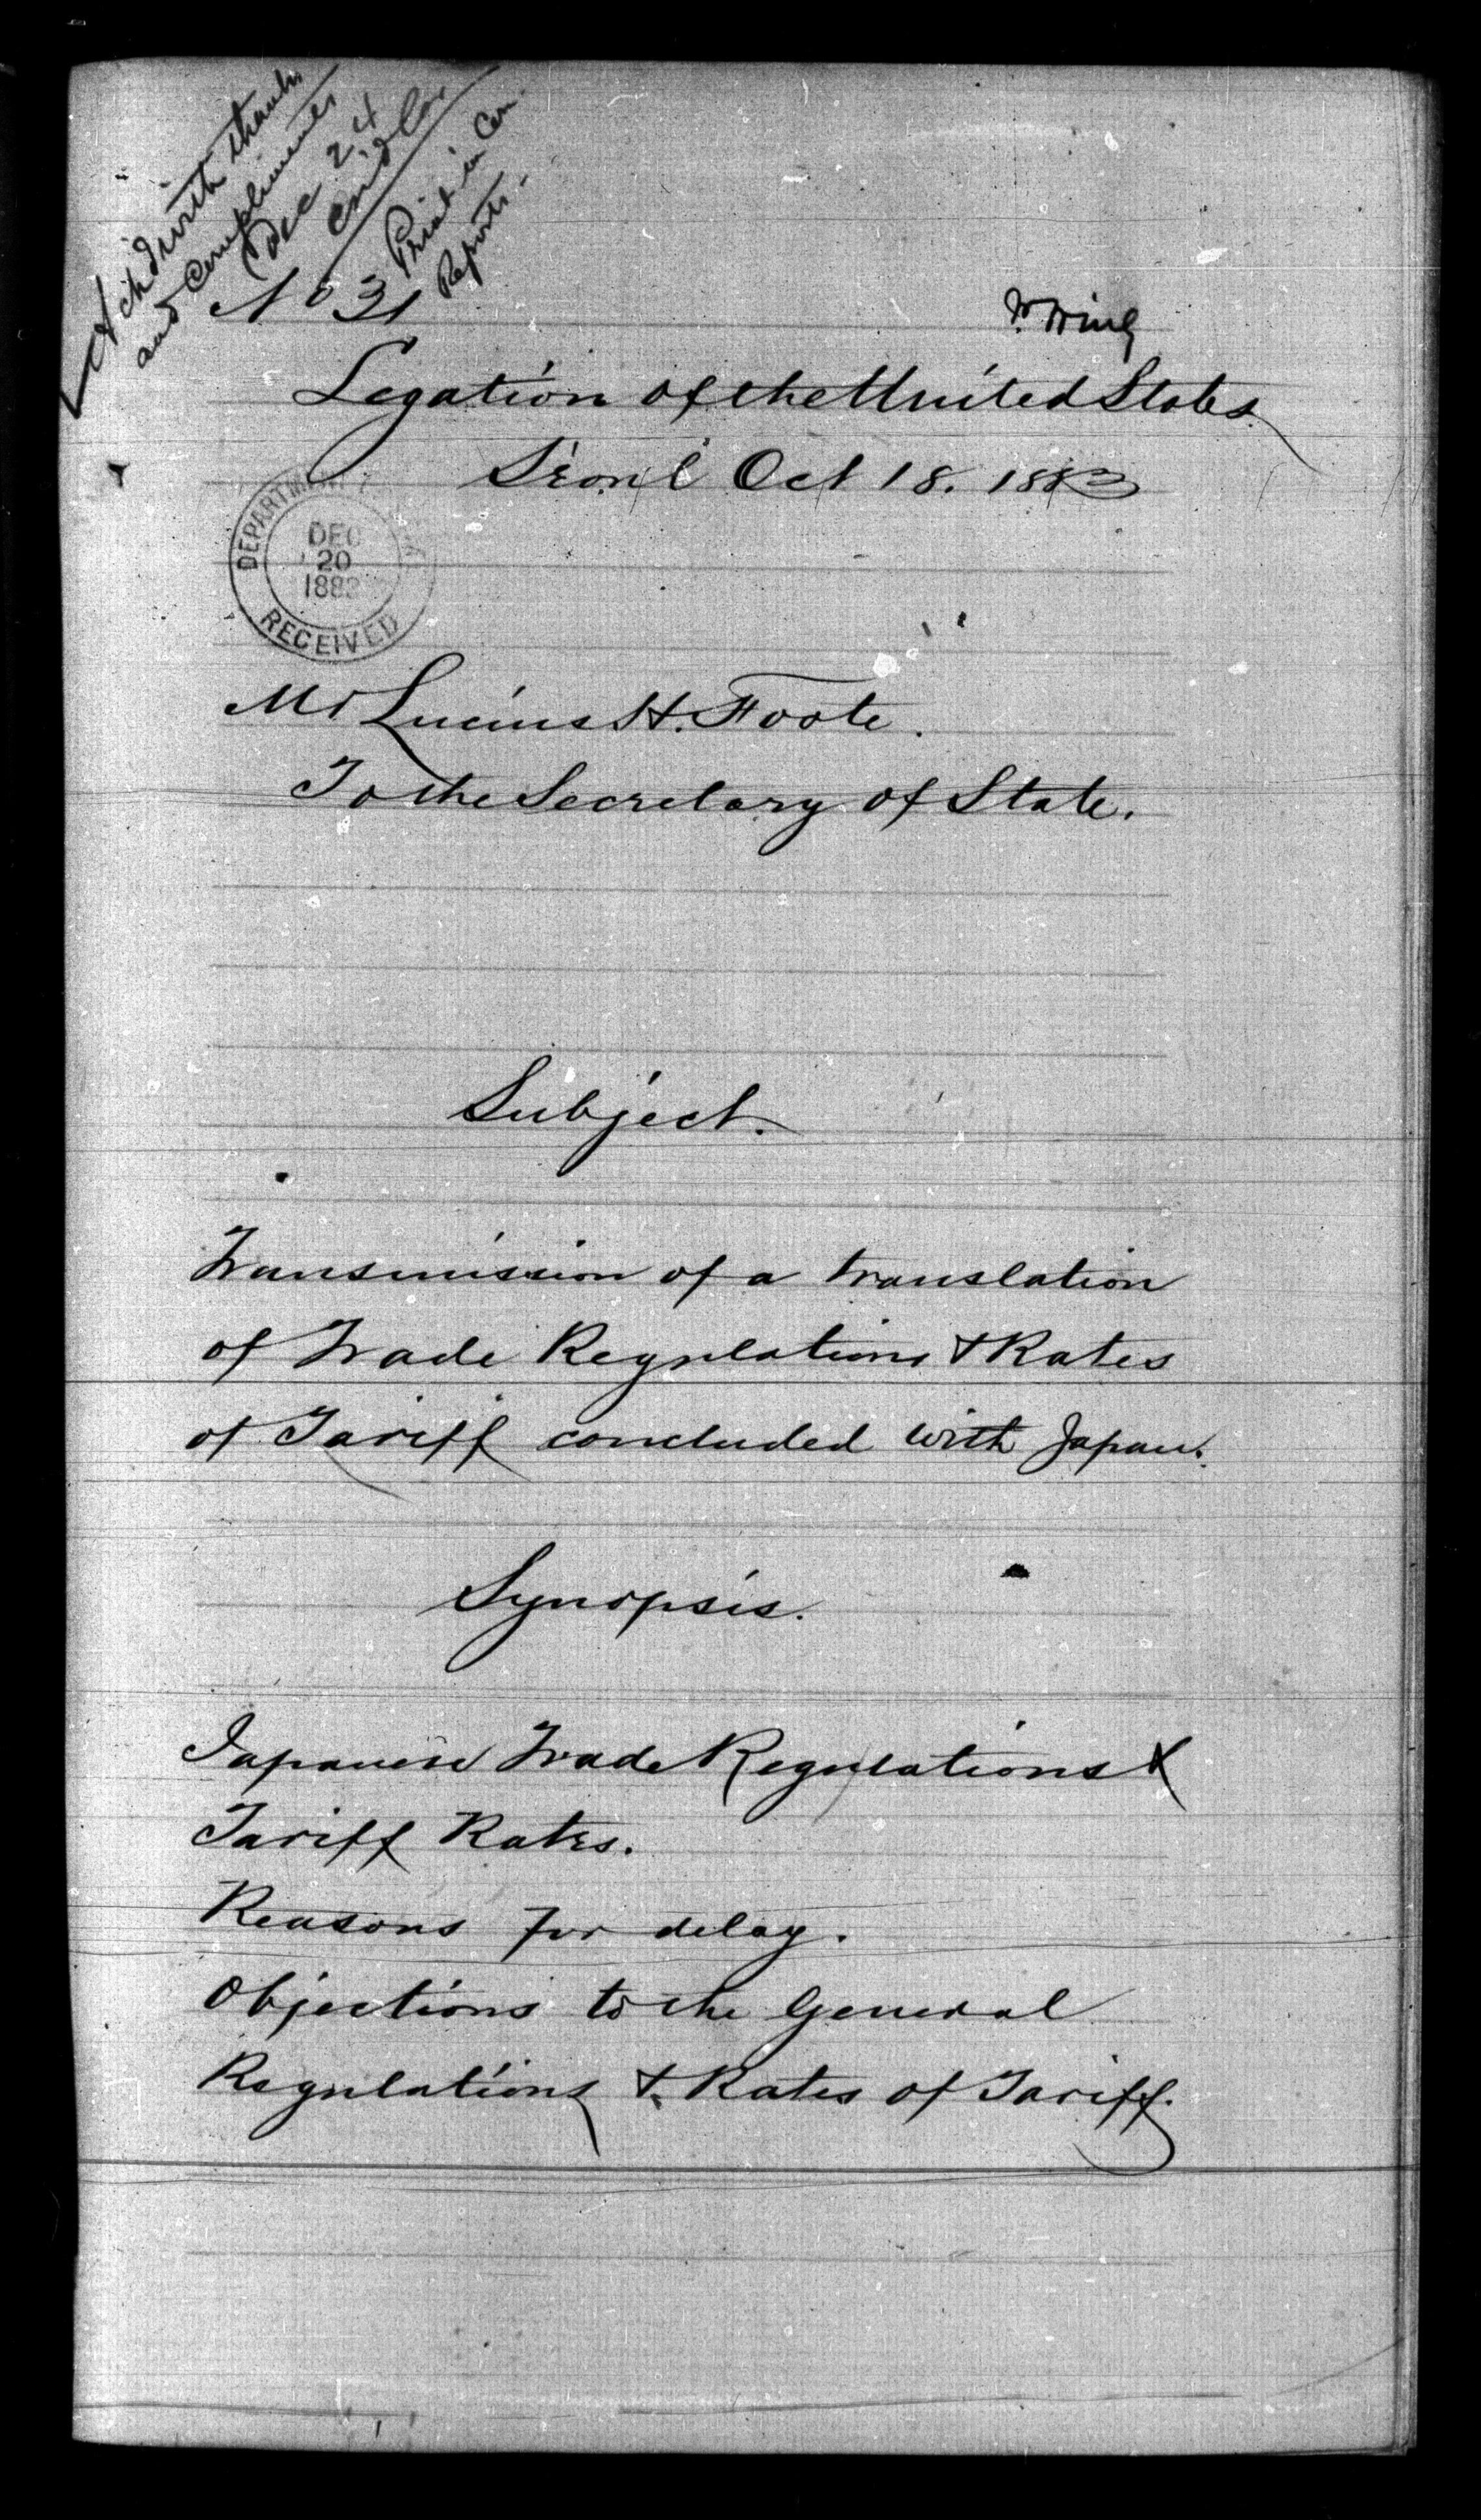 Ack'd with thanks
and compliments
Dec 24
Print in Con.
Reports -
No 31
Legation of the United States.
Séoul Oct 18. 1883
DEPARTMENT
DEC
20
1883
RECEIVED
Mr Lucius H. Foote.
To the Secretary of State.
Subject.
Transmission of a translation
of Trade Regulations & Rates
of Tariff concluded with Japan.
Synopsis.
Japanese Trade Regulations &
Tariff Rates.
Reasons for delay.
Objections to the General
Regulations & Rates of Tariff.